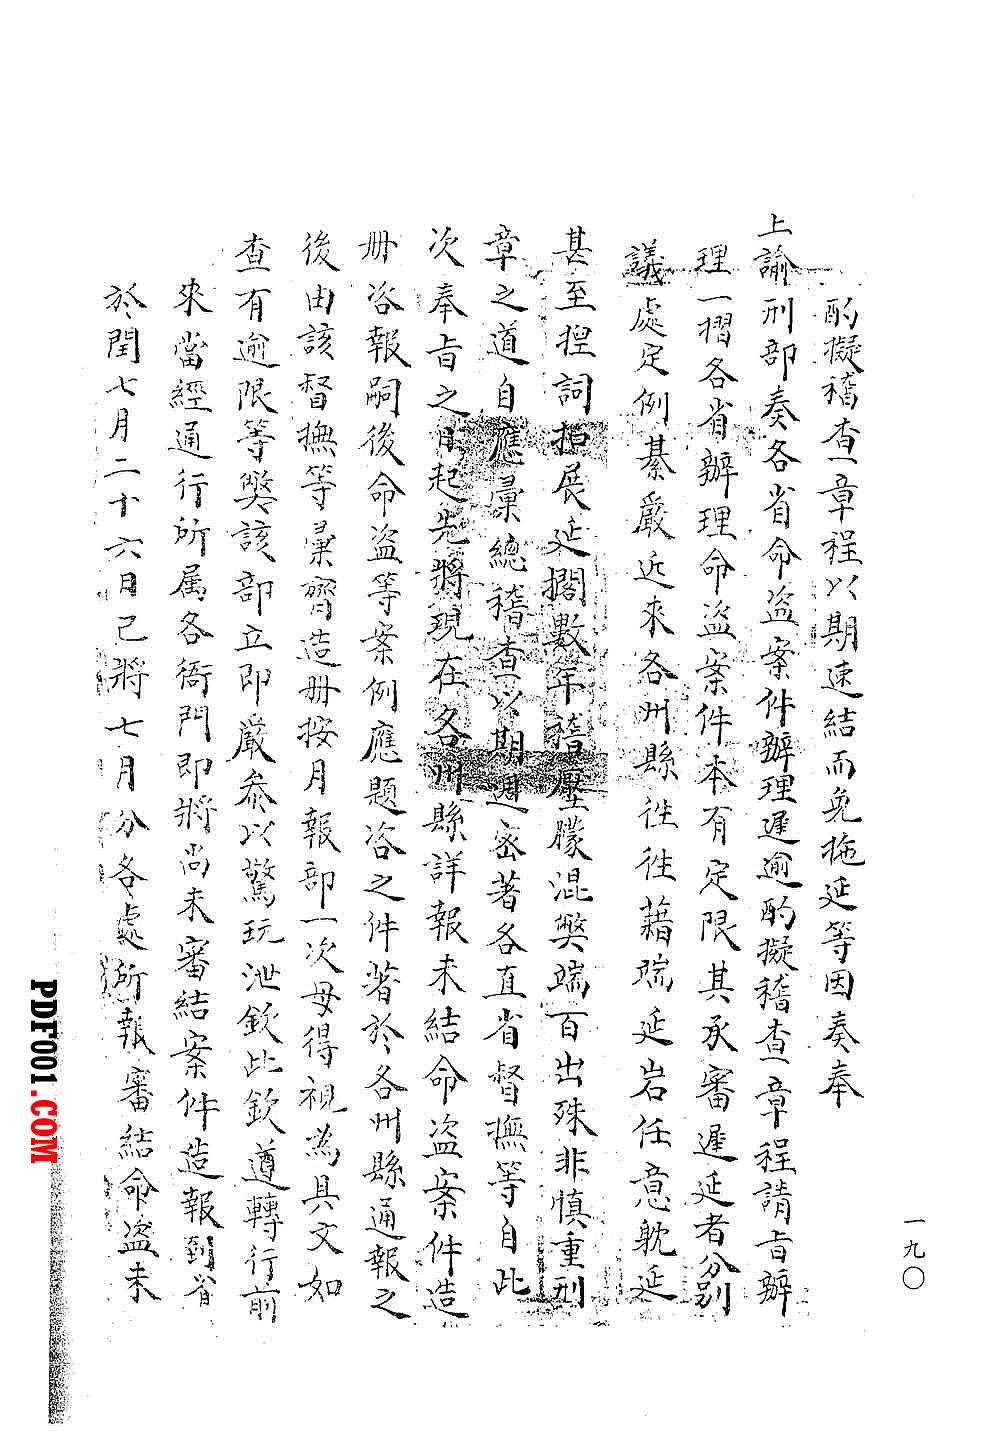 酌擬稽查章程以期速結而免拖延等因奏奉
上諭刑部奏各省命盜案件辦理遲逾酌擬稽查章程請旨辦
理一摺各省辦理命盜案件本有定限其承審遲延者分別
議處定例綦嚴近來各州縣徃徃藉端延宕任意躭延
甚至捏詞扣展延擱數年積壓朦混獘端百出殊非慎重刑
章之道自應彙總稽查以期週密著各直省督撫等自此
次奉旨之日起先將現在各州縣詳報未結命盜案件造
册咨報嗣後命盜等案例應題咨之件著於各州縣通報之
後由該督撫等彙齊造册按月報部一次毋得視為具文如
查有逾限等獘該部立即嚴叅以驚玩泄欽此欽遵轉行前
來當經通行所属各衙門即將尚未審結案件造報到省
於閏七月二十六日已將七月分各處所報審結命盜未
一九〇
PDF001.COM